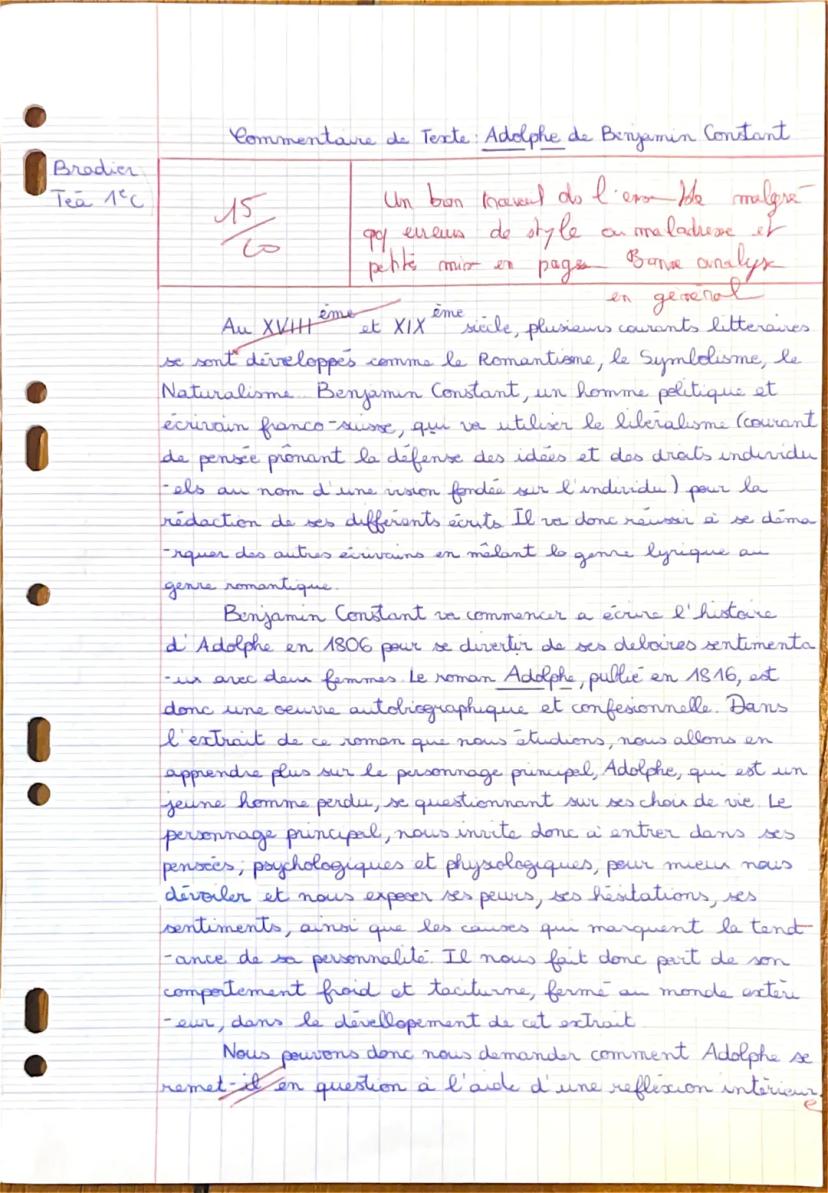 Commentaire de Texte : Adolphe de Benjamin Constant
Bradier
Téa 1eC
15
20
Un bon travail ds l'ensemble malgré
qq erreurs de style ou maladresse et
petite mise en page Bonne analyse
en général
Au XVIIIème et XIXème siècle, plusieurs courants litteraires
se sont développés comme le Romantisme, le Symbolisme, le
Naturalisme. Benjamin Constant, un homme politique et
écrivain franco-suisse, qui va utiliser le libéralisme (courant
de pensée prônant la défense des idées et des droits individu
-els au nom d'une vision fondée sur l'individu) pour la
rédaction de ses différents écrits. Il va donc réussir à se déma
-rquer des autres écrivains en mêlant le genre lyrique au
genre romantique.
Benjamin Constant va commencer a écrire l'histoire
d'Adolphe en 1806 pour se divertir de ses deboires sentimenta
-ux avec deux femmes. Le roman Adolphe, publié en 1816, est
donc une oeuvre autobiographique et confesionnelle. Dans
l'extrait de ce roman que nous étudions, nous allons en
apprendre plus sur le personnage principal, Adolphe, qui est un
jeune homme perdu, se questionnant sur ses choix de vie. Le
personnage principal, nous invite donc à entrer dans ses
pensées, psychologiques et physiologiques, pour mieux nous
dévoiler et nous exposer ses peurs, ses hésitations, ses
sentiments, ainsi que les causes qui marquent la tend
-ance de sa personnalité. Il nous fait donc part de son
comportement froid et taciturne, fermé au monde extéri
-eur, dans le dévellopement de cet extrait.
Nous pouvons donc nous demander comment Adolphe se
remet-il en question à l'aide d'une refléxion intérieure